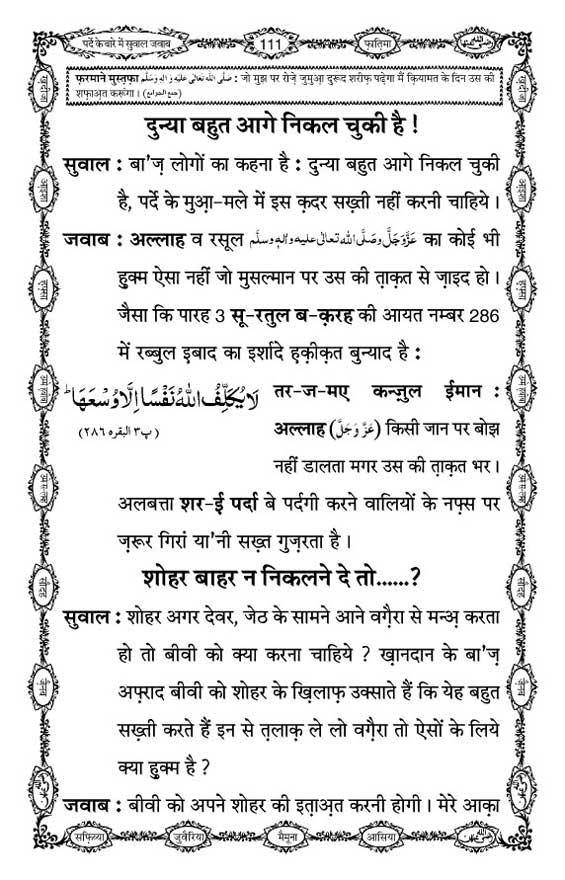 पर्दे के बारे में सुवाल जवाब
111
फ़ातिमा
फ़रमाने मुस्त़फ़ा صَلَّى اللّٰهُ تَعَالٰى عَلَيْهِ وَاٰلِهٖ وَسَلَّم : जो मुझ पर रोज़े जुमुआ़ दुरूद शरीफ़ पढ़ेगा मैं क़ियामत के दिन उस की
शफ़ाअ़त करूंगा। (جمع الجوامع)
दुन्या बहुत आगे निकल चुकी है !
सुवाल : बा'ज़ लोगों का कहना है : दुन्या बहुत आगे निकल चुकी
है, पर्दे के मुआ़-मले में इस क़दर सख़्ती नहीं करनी चाहिये।
जवाब : अल्लाह व रसूल عَزَّوَجَلَّ وصَلَّى اللّٰه تعالٰى عليه واٰلهٖ وسلَّم का कोई भी
हुक्म ऐसा नहीं जो मुसल्मान पर उस की त़ाक़त से ज़ाइद हो।
जैसा कि पारह 3 सू-रतुल ब-क़रह की आयत नम्बर 286
में रब्बुल इ़बाद का इर्शादे ह़क़ीक़त बुन्याद है :
لَا يُكَلِّفُ اللّٰهُ نَفْسًا اِلَّا وُسْعَهَا ؕ
(پ٣ البقره ٢٨٦)
तर-ज-मए कन्ज़ुल ईमान :
अल्लाह (عَزَّوَجَلَّ) किसी जान पर बोझ
नहीं डालता मगर उस की त़ाक़त भर।
अलबत्ता शर-ई़ पर्दा बे पर्दगी करने वालियों के नफ़्स पर
ज़रूर गिरां या'नी सख़्त गुज़रता है।
शोहर बाहर न निकलने दे तो......?
सुवाल : शोहर अगर देवर, जेठ के सामने आने वग़ैरा से मन्अ़ करता
हो तो बीवी को क्या करना चाहिये ? ख़ानदान के बा'ज़
अफ़्राद बीवी को शोहर के ख़िलाफ़ उक्साते हैं कि येह बहुत
सख़्ती करते हैं इन से त़लाक़ ले लो वग़ैरा तो ऐसों के लिये
क्या हुक्म है ?
जवाब : बीवी को अपने शोहर की इत़ाअ़त करनी होगी। मेरे आक़ा
सफ़िय्या
जुवैरिया
मैमूना
आसिया